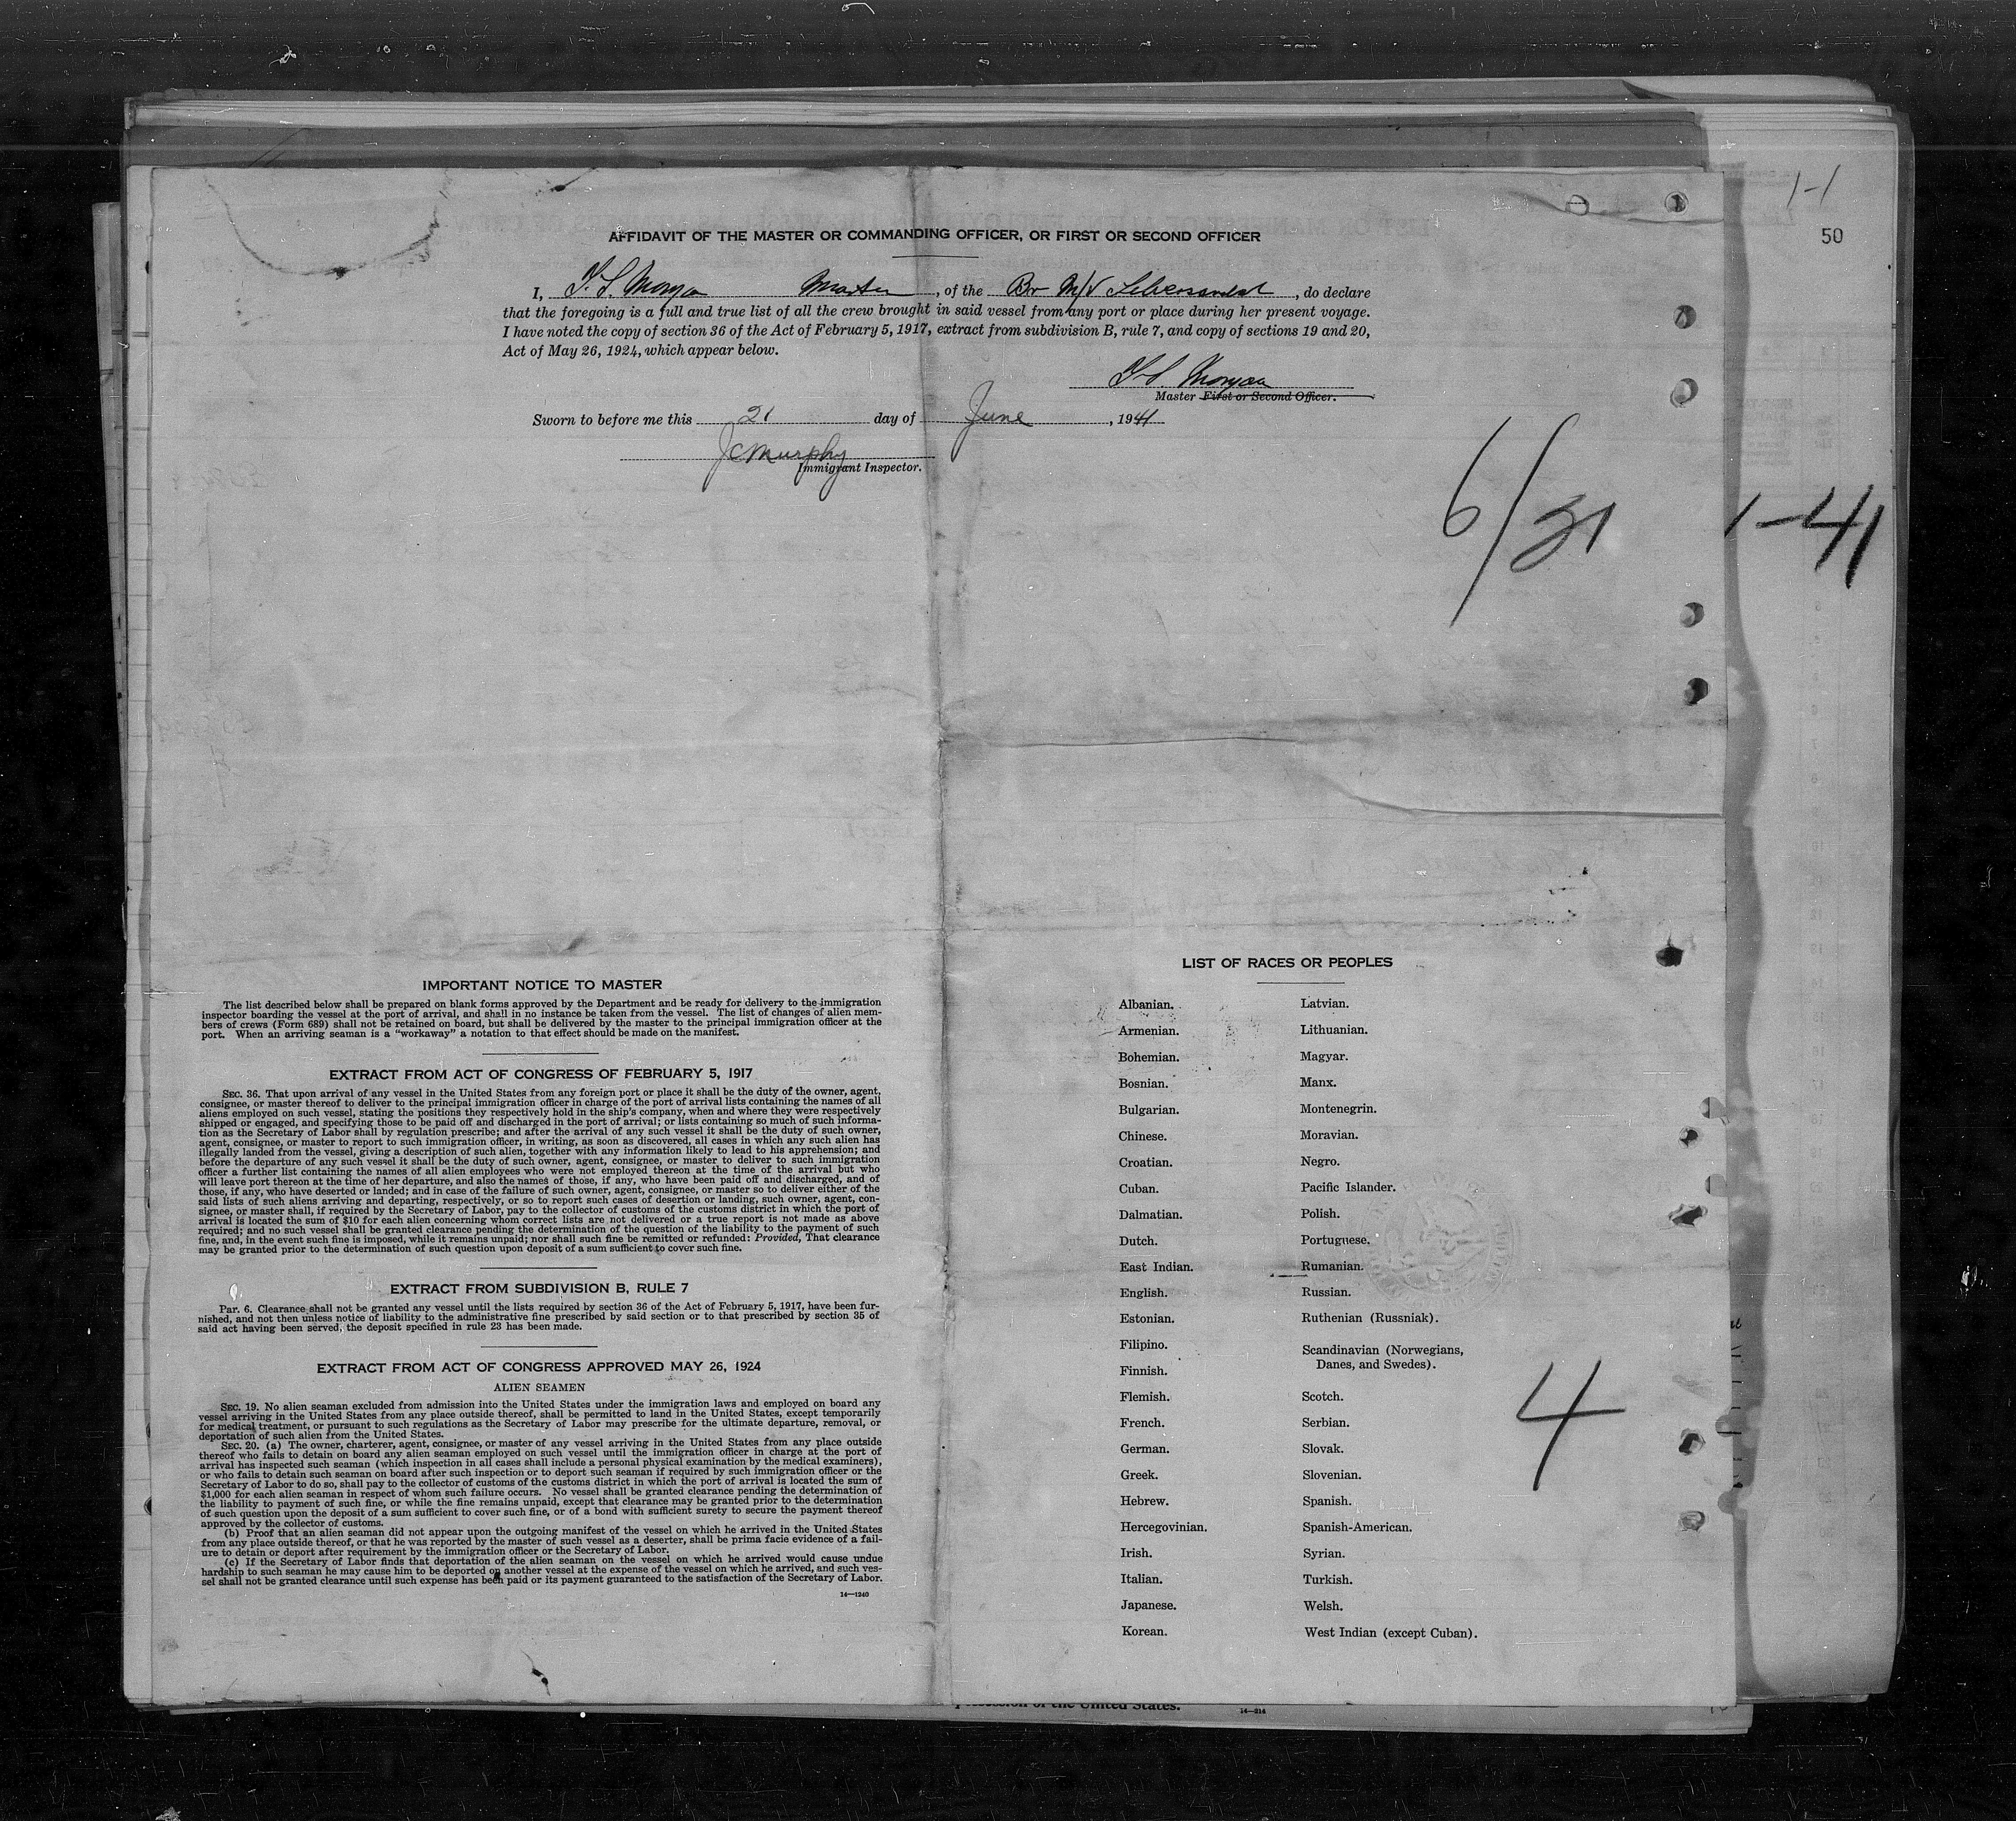 1-1
50
AFFIDAVIT OF THE MASTER OR COMMANDING OFFICER, OR FIRST OR SECOND OFFICER
I, Morgan Master, of the Br M/V Silversandal, do declare
that the foregoing is a full and true list of all the crew brought in said vessel from any port or place during her present voyage.
I have noted the copy of section 36 of the Act of February 5, 1917, extract from subdivision B, rule 7, and copy of sections 19 and 20,
Act of May 26, 1924, which appear below.
Morgan
Master First or Second Officer.
Sworn to before me this 21 day of June, 1941
JCMurphy
Immigrant Inspector.
6/21
1-41
IMPORTANT NOTICE TO MASTER
The list described below shall be prepared on blank forms approved by the Department and be ready for delivery to the immigration
inspector boarding the vessel at the port of arrival, and shall in no instance be taken from the vessel. The list of changes of alien mem-
bers of crews (Form 689) shall not be retained on board, but shall be delivered by the master to the principal immigration officer at the
port. When an arriving seaman is a “workaway” a notation to that effect should be made on the manifest.
EXTRACT FROM ACT OF CONGRESS OF FEBRUARY 5, 1917
SEC. 36. That upon arrival of any vessel in the United States from any foreign port or place it shall be the duty of the owner, agent,
consignee, or master thereof to deliver to the principal immigration officer in charge of the port of arrival lists containing the names of all
aliens employed on such vessel, stating the positions they respectively hold in the ship's company, when and where they were respectively
shipped or engaged, and specifying those to be paid off and discharged in the port of arrival; or lists containing so much of such informa-
tion as the Secretary of Labor shall by regulation prescribe; and after the arrival of any such vessel it shall be the duty of such owner,
agent, consignee, or master to report to such immigration officer, in writing, as soon as discovered, all cases in which any such alien has
illegally landed from the vessel, giving a description of such alien, together with any information likely to lead to his apprehension; and
before the departure of any such vessel it shall be the duty of such owner, agent, consignee, or master to deliver to such immigration
officer a further list containing the names of all alien employees who were not employed thereon at the time of the arrival but who
will leave port thereon at the time of her departure, and also the names of those, if any, who have been paid off and discharged, and of
those, if any, who have deserted or landed; and in case of the failure of such owner, agent, consignee, or master so to deliver either of the
said lists of such aliens arriving and departing, respectively, or so to report such cases of desertion or landing, such owner, agent, con-
signee, or master shall, if required by the Secretary of Labor, pay to the collector of customs of the customs district in which the port of
arrival is located the sum of $10 for each alien concerning whom correct lists are not delivered or a true report is not made as above
required; and no such vessel shall be granted clearance pending the determination of the question of the liability to the payment of such
fine, and, in the event such fine is imposed, while it remains unpaid; nor shall such fine be remitted or refunded: Provided, That clearance
may be granted prior to the determination of such question upon deposit of a sum sufficient to cover such fine.
EXTRACT FROM SUBDIVISION B, RULE 7
Par. 6. Clearance shall not be granted any vessel until the lists required by section 36 of the Act of February 5, 1917, have been fur-
nished, and not then unless notice of liability to the administrative fine prescribed by said section or to that prescribed by section 35 of
said act having been served, the deposit specified in rule 23 has been made.
EXTRACT FROM ACT OF CONGRESS APPROVED MAY 26, 1924
ALIEN SEAMEN
SEC. 19. No alien seaman excluded from admission into the United States under the immigration laws and employed on board any
vessel arriving in the United States from any place outside thereof, shall be permitted to land in the United States, except temporarily
for medical treatment, or pursuant to such regulations as the Secretary of Labor may prescribe for the ultimate departure, removal, or
deportation of such alien from the United States.
SEC. 20. (a) The owner, charterer, agent, consignee, or master of any vessel arriving in the United States from any place outside
thereof who fails to detain on board any alien seaman employed on such vessel until the immigration officer in charge at the port of
arrival has inspected such seaman (which inspection in all cases shall include a personal physical examination by the medical examiners),
or who fails to detain such seaman on board after such inspection or to deport such seaman if required by such immigration officer or the
Secretary of Labor to do so, shall pay to the collector of customs of the customs district in which the port of arrival is located the sum of
$1,000 for each alien seaman in respect of whom such failure occurs. No vessel shall be granted clearance pending the determination of
the liability to payment of such fine, or while the fine remains unpaid, except that clearance may be granted prior to the determination
of such question upon the deposit of a sum sufficient to cover such fine, or of a bond with sufficient surety to secure the payment thereof
approved by the collector of customs.
(b) Proof that an alien seaman did not appear upon the outgoing manifest of the vessel on which he arrived in the United States
from any place outside thereof, or that he was reported by the master of such vessel as a deserter, shall be prima facie evidence of a fail-
ure to detain or deport after requirement by the immigration officer or the Secretary of Labor.
(c) If the Secretary of Labor finds that deportation of the alien seaman on the vessel on which he arrived would cause undue
hardship to such seaman he may cause him to be deported on another vessel at the expense of the vessel on which he arrived, and such ves-
sel shall not be granted clearance until such expense has been paid or its payment guaranteed to the satisfaction of the Secretary of Labor.
14—1240
LIST OF RACES OR PEOPLES
Albanian.
Armenian.
Bohemian.
Bosnian.
Bulgarian.
Chinese.
Croatian.
Cuban.
Dalmatian.
Dutch.
East Indian.
English.
Estonian.
Filipino.
Finnish.
Flemish.
French.
German.
Greek.
Hebrew.
Hercegovinian.
Irish.
Italian.
Japanese.
Korean.
Latvian.
Lithuanian.
Magyar.
Manx.
Montenegrin.
Moravian.
Negro.
Pacific Islander.
Polish.
Portuguese.
Rumanian.
Russian.
Ruthenian (Russniak).
Scandinavian (Norwegians,
Danes, and Swedes).
Scotch.
Serbian.
Slovak.
Slovenian.
Spanish.
Spanish-American.
Syrian.
Turkish.
Welsh.
West Indian (except Cuban).
4
of the United States.
14—214